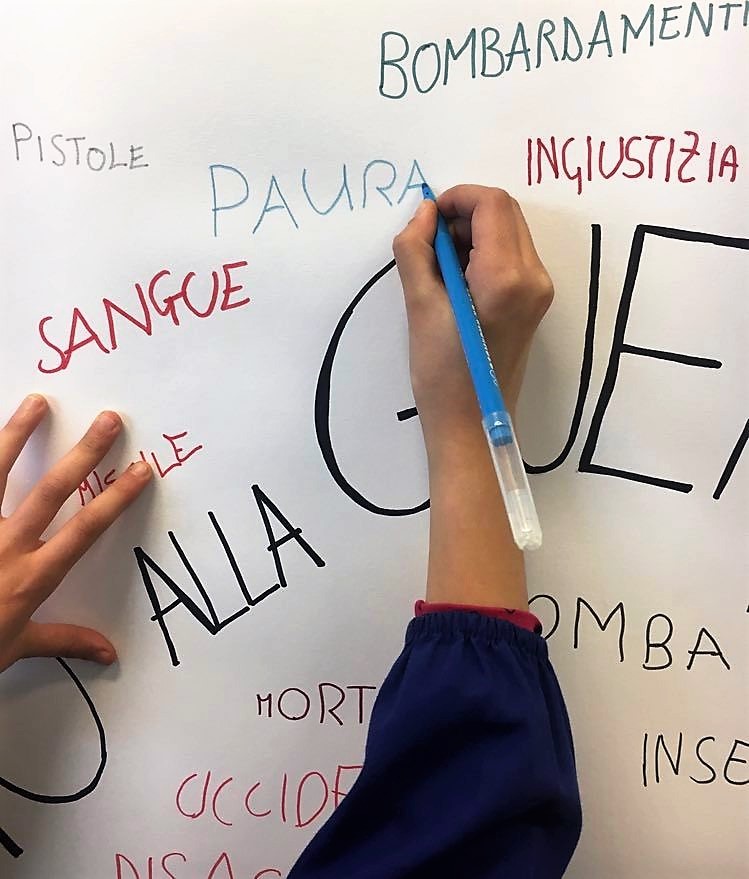 BOMBARDAMENTI
PISTOLE
INGIUSTIZIA
PAURA
SANGUE
GUE
ALLA
OMBA
MORT
INSE
UCCIDE
DISA